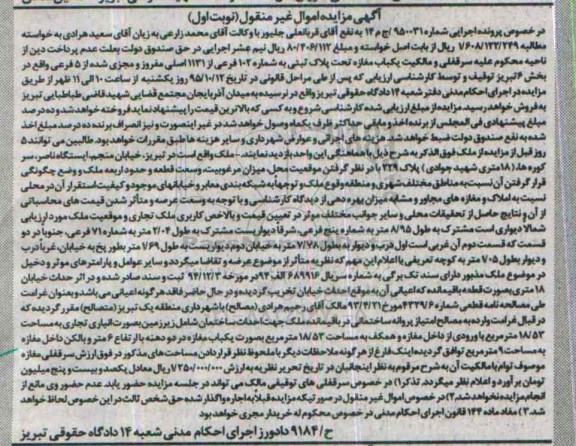 آگهی مزایده اموال غیر منقول (نوبت اول)
در خصوص پرونده اجرایی شماره ۹۵۰۰۳۱ /ج/۱۴ به نفع آقای قربانعلی جلیور با وکالت آقای محمد زارعی به زیان آقای سعید هرادی به خواسته
مطالبه ۷/۶۰۸/۱۲۲/۲۴۹ ریال از بابت اصل خواسته و مبلغ ۸۰/۴۰۶/۱۱۲ ریال نیم عشر اجرایی در حق صندوق دولت بعلت عدم پرداخت دین از
ناحیه محکوم علیه سرقفلی و مالکیت یکباب مغازه تحت پلاک ثبتی به شماره ۱۰۲ فرعی از ۱۱۳۱ اصلی مفروز و مجزی شده از ۵ فرعی واقع در
بخش ۶ تبریز توقیف و توسط کارشناسی ارزیابی که پس از طی مراحل قانونی در تاریخ ۹۵/۱۰/۱۲ روز یکشنبه از ساعت ۱۰ الی ۱۱ ظهر از طریق
مزایده در اجرای احکام مدنی دفتر شعبه ۱۴ دادگاه حقوقی تبریز واقع در تبریز به میدان آذربایجان مجتمع قضایی شهید قاضی طباطبایی تبریز
به فروش خواهد رسید. مزایده از مبلغ ارزیابی شده کارشناسی شروع و به کسی که بالاترین قیمت را پیشنهاد نماید فروخته خواهد شد و ده درصد
مبلغ پیشنهادی فی المجلس از برنده اخذ و مابقی حداکثر ظرف یکماه وصول خواهد شد در غیر اینصورت و نیز انصراف برنده ده درصد مبلغ اخذ
شده به نفع صندوق دولت ضبط خواهد شد. هزینه های اجرائی و عوارض شهرداری و سایر هزینه ها طبق مقررات خواهد بود. طالبین می توانند ۵
روز قبل از مزایده از ملک فوق الذکر به شرح ذیل با هماهنگی این واحد بازدید نمایند. - ملک واقع است در تبریز، خیابان منجم، ایستگاه ناصر، سر
کوره ها، (۱۸ متری شهید جوادی) پلاک ۳۳۹ با در نظر گرفتن موقعیت محل میزان مرغوبیت، وسعت قطعه و حدود اربعه ملک و وضع چگونگی
قرار گرفتن آن نسبت به مناطق مختلف شهری و منطقه وقوع ملک و توجهاً به شبکه بندی معابر و خیابانهای موجود و کیفیت استقرار آن در محلی
نسبت به املاک و مغازه های مجاور و مشابه میزان بهره دهی از دیدگاه کارشناسی و با توجه به وسعت عرصه و متأثر شدن قیمت های محاسباتی
از آن و نتایج حاصل از تحقیقات محلی و سایر جوانب مختلف موثر در تعیین قیمت و بالاخص کاربری ملک تجاری و موقعیت ملک مورد ارزیابی
شمالا دیواری است مشترک به طول ۸/۹۵ متر به شماره پنج فرعی، شرقاً دیواریست مشترک به طول ۲/۰۴ متر به شماره ۷۱ فرعی، جنوباً در دو
قسمت که قسمت دوم آن غربی است اول درب و دیوار به طول ۷/۷۸ متر به خیابان دوم دیواریست به طول ۷/۶۹ متر بطور پخ به خیابان، غرباً درب
و دیوار بطول ۷۰۵ متر به کوچه تعریفی با اعلام این مهم که نظریه متأثر از موضوع عرضه و تقاضا میگردد و سایر عوامل و پارامترهای موثر و دخیل
در موضوع ملک مذبور دارای سند تک برگی به شماره سریال ۶۸۹۹۱۶ الف ۹۴ در مورخه ۹۴/۱۲/۳ ثبت و سند صادر شده و در اثر احداث خیابان
۱۸ متری بصورت قطعه باقیمانده که اعیانی آن به موقع احداث خیابان تخریب گردیده و در حال حاضر فاقد هر گونه اعیانی می باشد و بعنوان غرامت
طی مصالحه نامه قطعی شماره ۴۳۲۹/۶ مورخ ۹۳/۶/۲۱ مالک آقای رحیم هرادی (مصالح) با شهرداری منطقه یک تبریز (متصالح) مقرر گردیده که
در قبال غرامت وارده به مصالح امتیاز پروانه ساختمانی در باقیمانده ملک جهت احداث ساختمان شامل زیرزمین بصورت انباری تجاری به مساحت
۱۸/۵۳ متر مربع با ورودی از داخل مغازه و همکف به مساحت ۱۸/۵۳ متر مربع بصورت یکباب مغازه در دو دهنه با ارتفاع ۶ متر و بالکن داخل مغازه
به مساحت ۹ متر مربع توافق گردیده اینک فارغ از هر گونه ملاحظات دیگر با ملحوظ نظر قرار دادن مساحت های مذکور در فوق ارزش سرقفلی مغازه
موصوف توأم با مالکیت آن به شرح مرقوم به نظر اینجانبان در تاریخ تحریر نظریه به ارزش ۱/۲۵۰/۰۰۰/۰۰۰ ریال معادل یکصد و بیست و پنج میلیون
تومان برآورد و اعلام نظر میگردد. تذکر ۱) در خصوص سرقفلی های توقیفی مالک می تواند در جلسه مزایده حضور یابد. عدم حضور وی مانع از
انجام مزایده نخواهد شد. ۲) در خصوص اموال غیر منقول در صورتیکه مزایده قبلا به اجاره واگذار شده حق شخص ثالث در این خصوص لحاظ خواهد
شد. ۳) مفاد ماده ۱۴۴ قانون اجرای احکام مدنی در خصوص محکوم له خریدار مجری خواهد بود
ح/۹۱۸۴ دادورز اجرای احکام مدنی شعبه ۱۴ دادگاه حقوقی تبریز